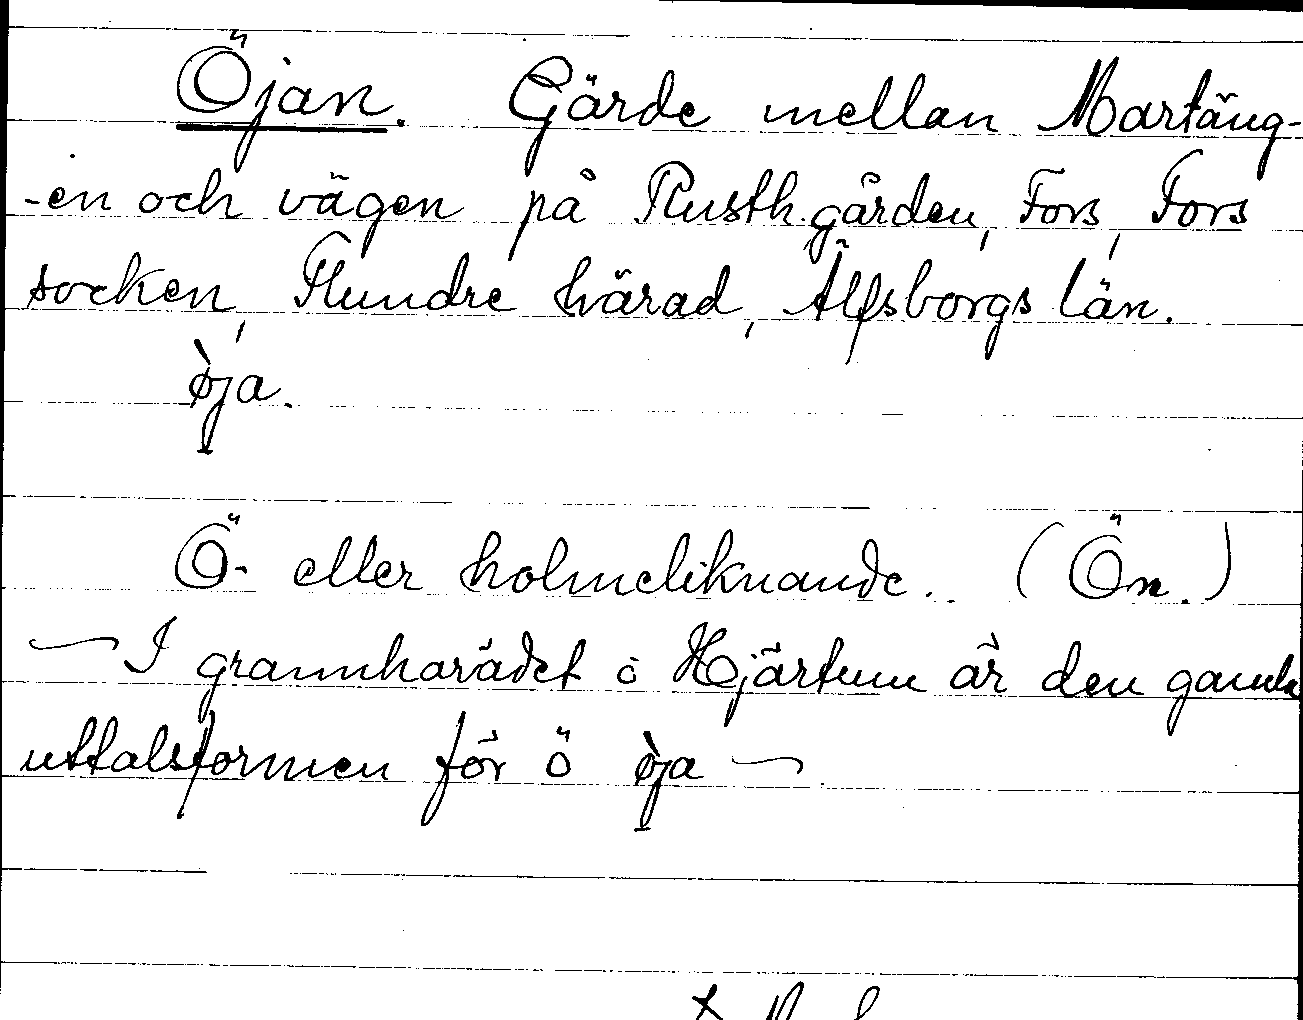 Öjan. Gärde mellan Martäng-
-en och vägen på Rusth.gården, Fors, Fors
socken, Flundre härad, Älfsborgs län.
ø̀ja.
Ö- eller holmeliknande. (Ön.)
— I grannharädet o Hjärtum är den gamla
uttalsformen för ö ø̀ja —